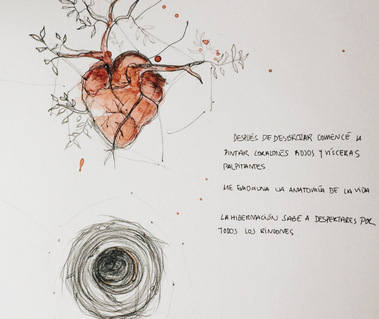 DESPUÉS DE DESBROZAR COMENCÉ A
PINTAR CORAZONES ROJOS Y VÍSCERAS
PALPITANTES.
ME EMOCIONA LA ANATOMÍA DE LA VIDA
LA HIBERNACIÓN SABE A DESPERTARES POR
TODOS LOS RINCONES